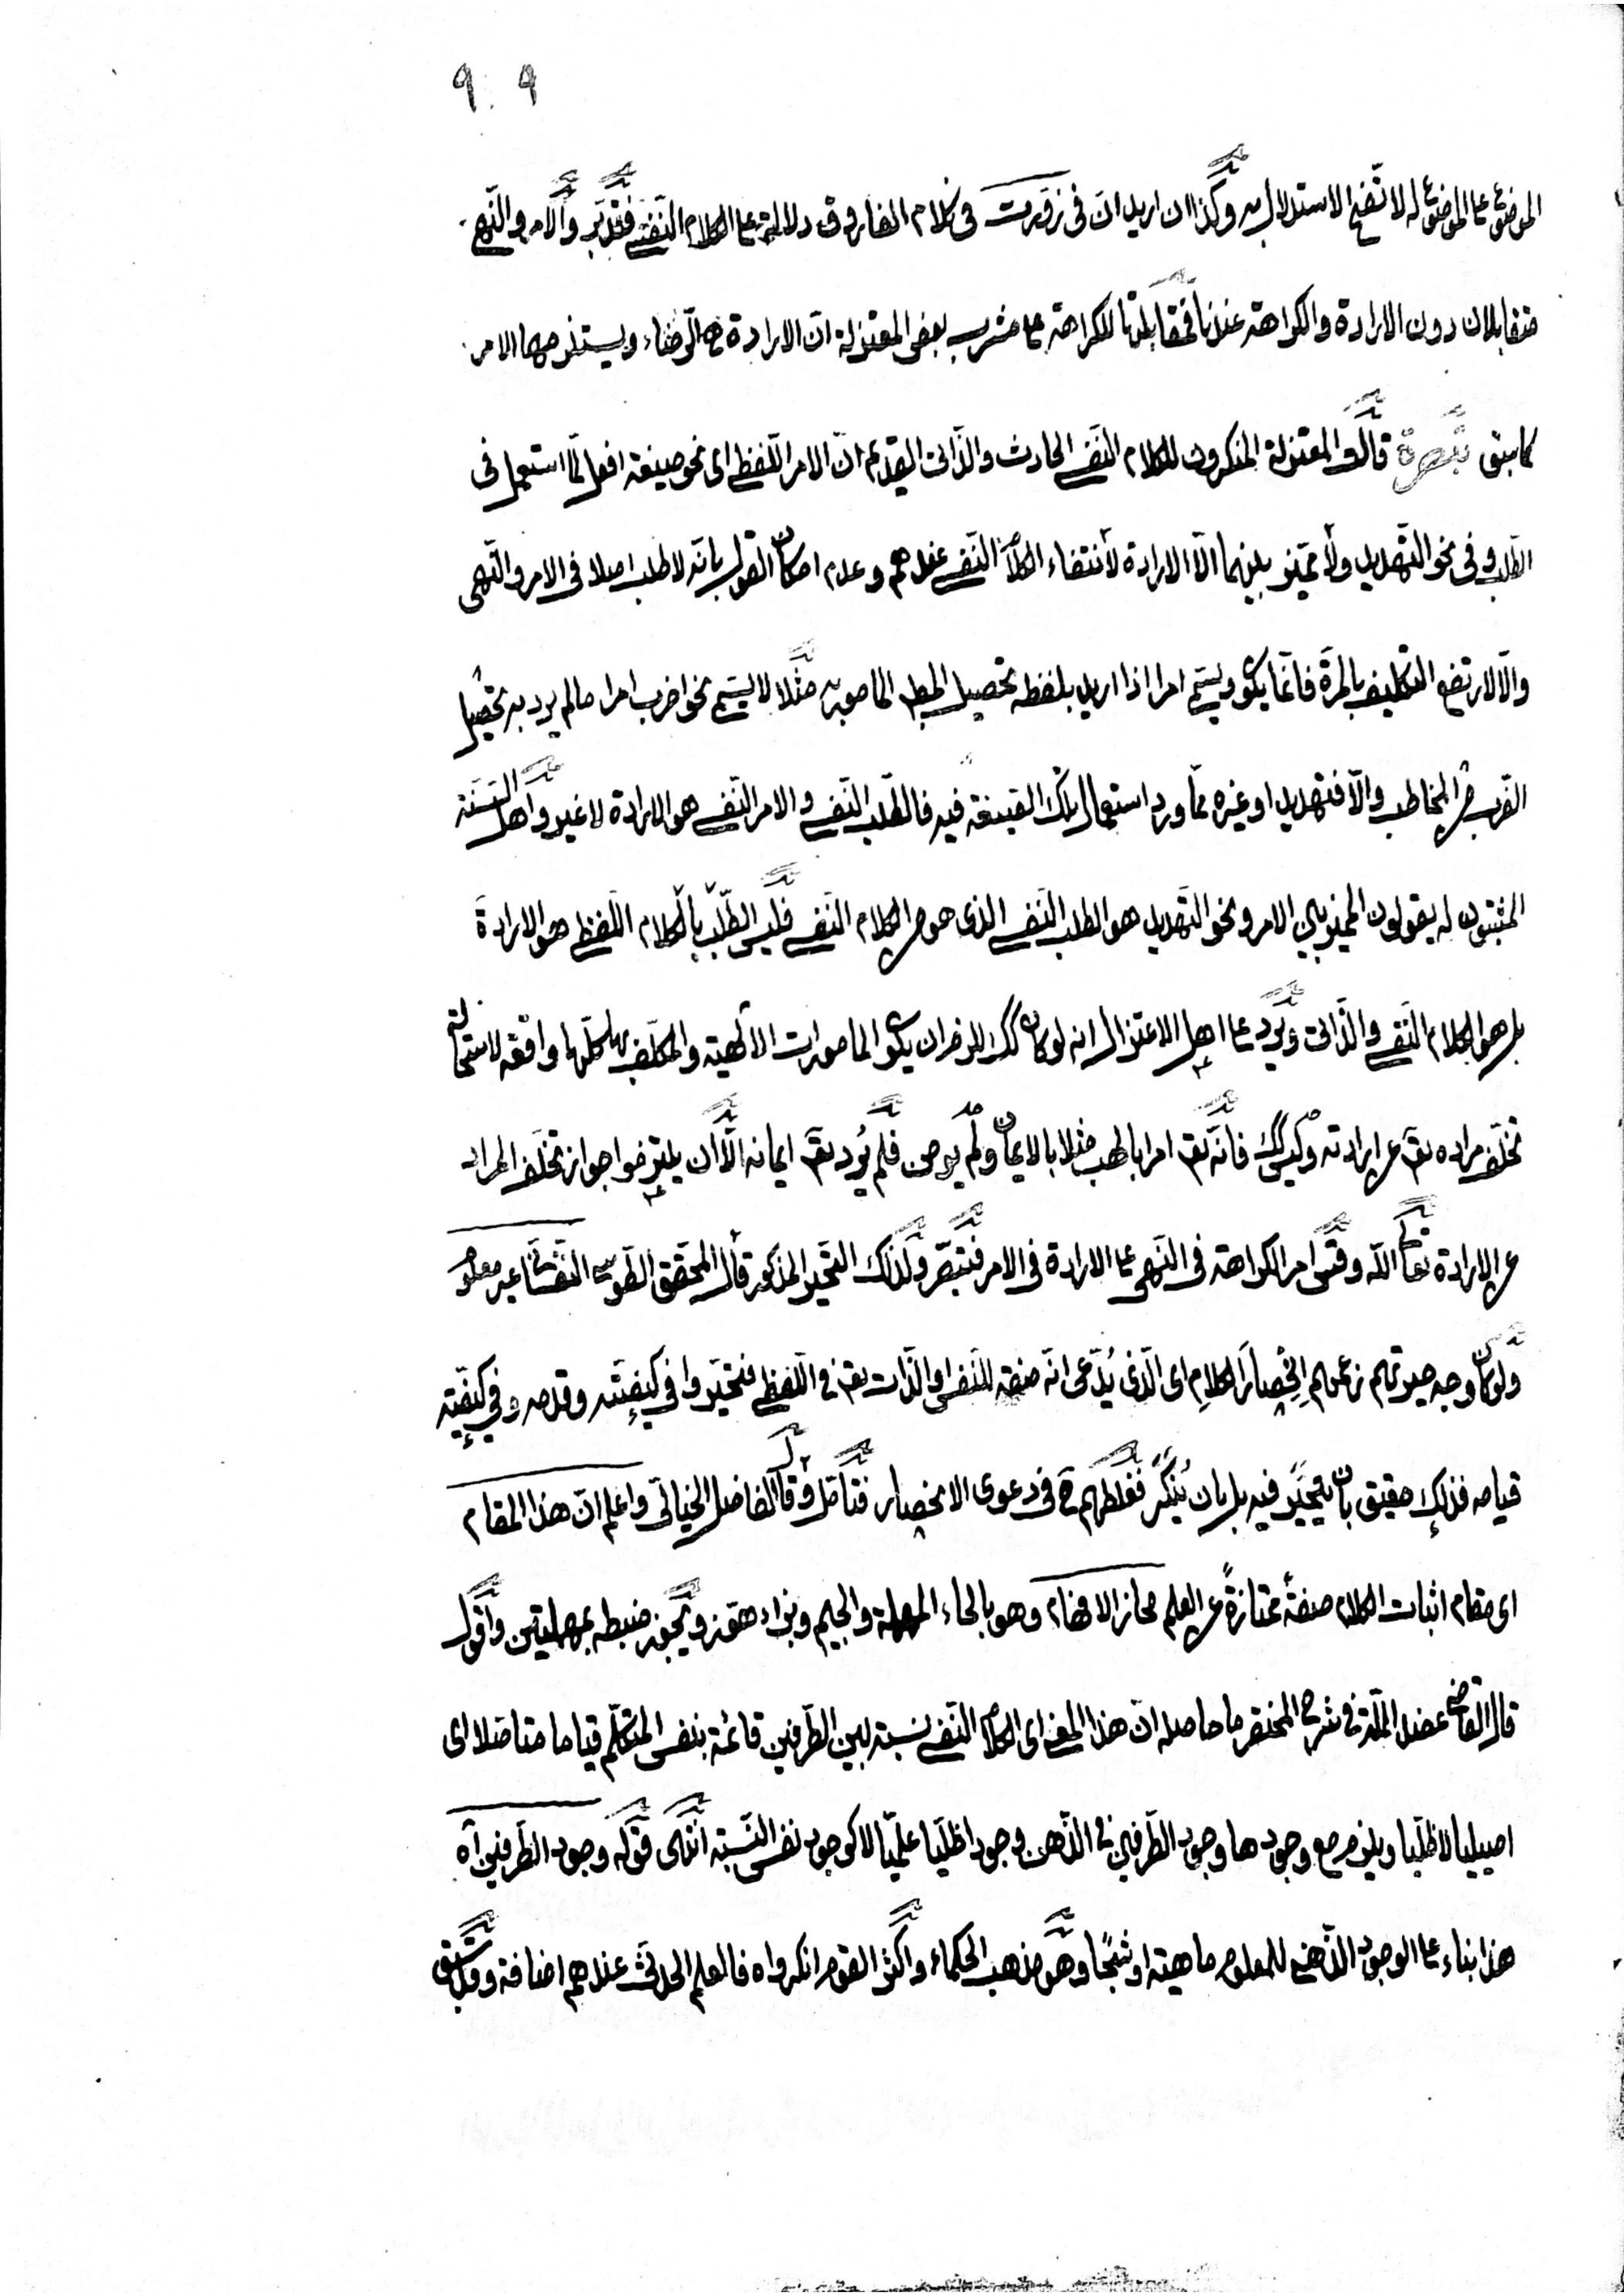 ٩ ٩
الموضوع على الموضوع له لا تنفع الاستدلال به وكذا ان اريد ان فى زورت فى كلام الفاروق دلالة على الكلام النفسى فتدبر والامر والنهى
متقابلان دون الارادة والكراهة عندنا فمقابلتها للكراهة على مشرب بعض المعتزلة ان الارادة هى الرضاء ويستلزمها الامر
كما سبق تبصرة قالوا المعتزلة المنكرون للكلام النفسى الحادث والذاتى القديم ان الامر اللفظى اى نحو صيغة افعل لما استعمل فى
الطلب وفى نحو التهديد ولا مميز بينهما الا الارادة لانتفاء الكلام النفسى عندهم وعدم امكان القول بانه لا طلب اصلا فى الامر والنهى
والا لارتفع التكليف بالمرة فانما يكون ويسمى امرا اذا اريد بلفظه تحصيل المط المامور به مثلا لا يسمى نحو اضرب امرا ما لم يرد به تحصيل
الضرب من المخاطب والا فتهديد او غيره مما ورد استعمال تلك الصيغة فيه فالطلب النفسى والامر النفسى هو الارادة لا غير واهل السنة
المثبتون له يقولون المميز بين الامر ونحو التهديد هو الطلب النفسى الذى هو من الكلام النفسى فليس الطلب بالكلام اللفظى هو الارادة
بل هو الكلام النفسى والذاتى ويرد على اهل الاعتزال انه لو كان كك للزم ان يكون المامورات الالهية والمكلف بها كلها واقعة لاستحالة
تخلف مراده تع عن ارادته وليس كك فانه تع امر ابا لهب مثلا بالايمان ولم يؤمن فلم يرد تع ايمانه الا ان يلتزموا جواز تخلف المراد
عن الارادة تعالى الله وقس امر الكراهة فى النهى على الارادة فى الامر فتبصر ولذلك التحير المذكور قال المحقق الطوسى النفسانى غير معلوم
ولو كان وجه حيرتهم زعمهم انحصار الكلام اى الذى يدعى انه صفة للنفس او الذات تع فى اللفظى فتحيروا فى كيفيته وقدمه وفى كيفية
قيامه فذلك حقيق بان يتحير فيه بل بان ينكر فغلطهم ح فى دعوى الانحصار فتامل وقال الفاضل الخيالى واعلم ان هذا المقام
اى مقام اثبات الكلام صفة ممتازة عن العلم محاز الافهام وهو بالحاء المهملة والجيم وبزاء هوز ويجوز ضبطه بمهملتين واقول
قال القاضى عضد الملة فى شرح المختصر ما حاصله ان هذا المعنى اى الكلام النفسى نسبة بين الطرفين قائمة بنفس المتكلم قياما متاصلا اى
اصيليا لا ظليا ويلزم مع وجودها وجود الطرفين فى الذهن وجودا ظليا علميا لا كوجود نفس النسبة انتهى قوله وجود الطرفين آه
هذا بناء على الوجود الذهنى للمعلوم ماهية او شبحا وهو مذهب الحكماء واكثر القوم انكروه فالعلم الحادث عندهم اضافة وقد سبق